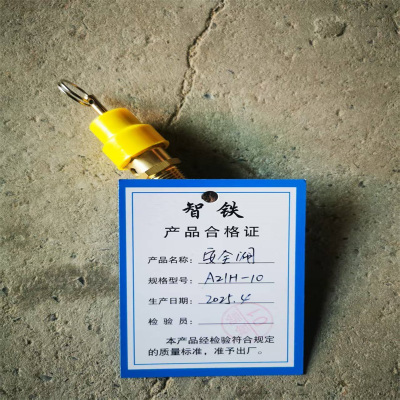 智铁
产品合格证
产品名称：安全阀
规格型号：A21H-10
生产日期：2025.4
检验员：
本产品经检验符合规定
的质量标准，准予出厂。